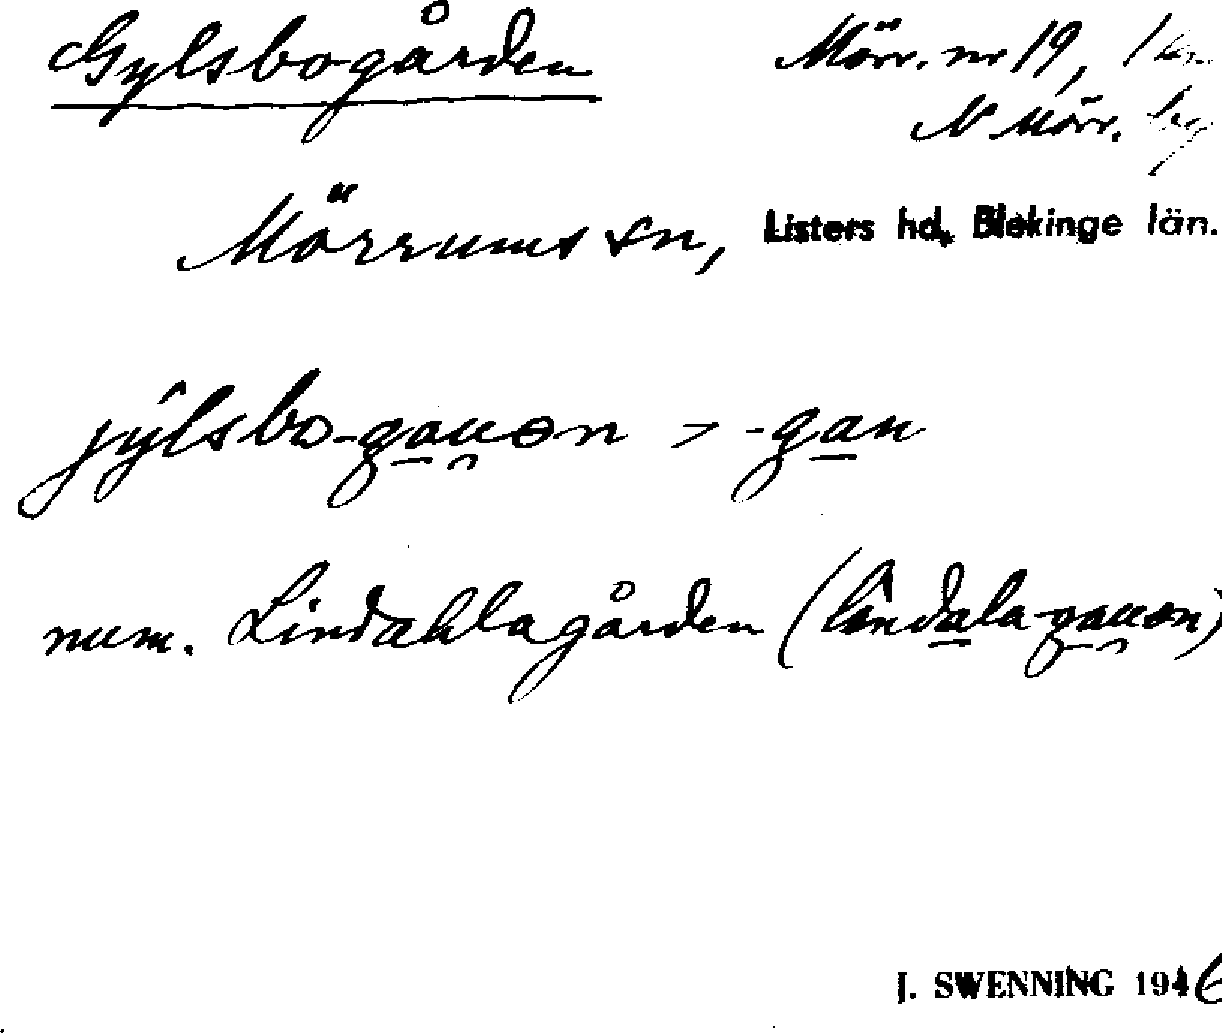 Gylsbogården Mörr. nr 19, 1 km
N Mörr. by
Mörrums sn, Listers hd, Blekinge län.
jy̑lsbo-ga̱u̯ən > -ga̱n
num. Lindahlagården (lindala-gau̯ən)
J. SWENNING 1946